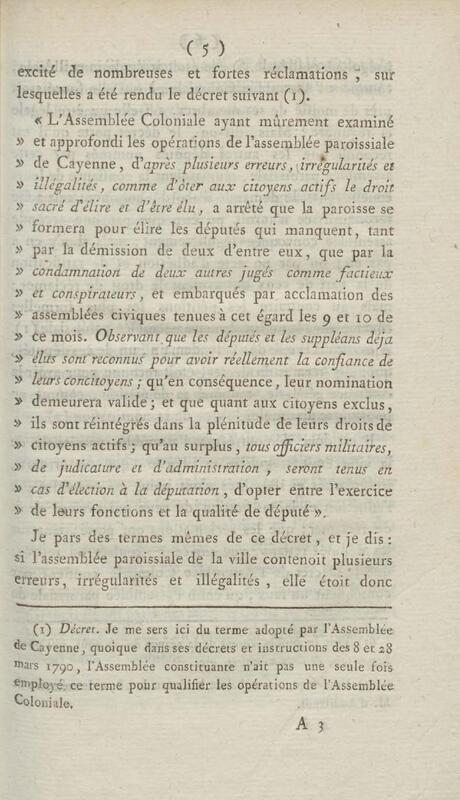 ( 5 )
excité de nombreuses et fortes réclamations ; sur
lesquelles a été rendu le décret suivant (1).
« L'Assemblée Coloniale ayant mûrement examiné
» et approfondi les opérations de l'assemblée paroissiale
» de Cayenne, d'après plusieurs erreurs, irrégularités et
» illégalités, comme d'ôter aux citoyens actifs le droit
» sacré d'élire et d'être élu, a arrêté que la paroisse se
» formera pour élire les députés qui manquent, tant
» par la démission de deux d'entre eux, que par la
» condamnation de deux autres jugés comme factieux
» et conspirateurs, et embarqués par acclamation des
» assemblées civiques tenues à cet égard les 9 et 10 de
» ce mois. Observant que les députés et les suppléans déja
» élus sont reconnus pour avoir réellement la confiance de
» leurs concitoyens ; qu'en conséquence, leur nomination
» demeurera valide ; et que quant aux citoyens exclus,
» ils sont réintégrés dans la plénitude de leurs droits de
» citoyens actifs ; qu'au surplus, tous officiers militaires,
» de judicature et d'administration, seront tenus en
» cas d'élection à la députation, d'opter entre l'exercice
» de leurs fonctions et la qualité de député ».
Je pars des termes mêmes de ce décret, et je dis :
si l'assemblée paroissiale de la ville contenoit plusieurs
erreurs, irrégularités et illégalités, elle étoit donc
(1) Décret. Je me sers ici du terme adopté par l'Assemblée
de Cayenne, quoique dans ses décrets et instructions des 8 et 28
mars 1790, l'Assemblée constituante n'ait pas une seule fois
employé ce terme pour qualifier les opérations de l'Assemblée
Coloniale.
A 3